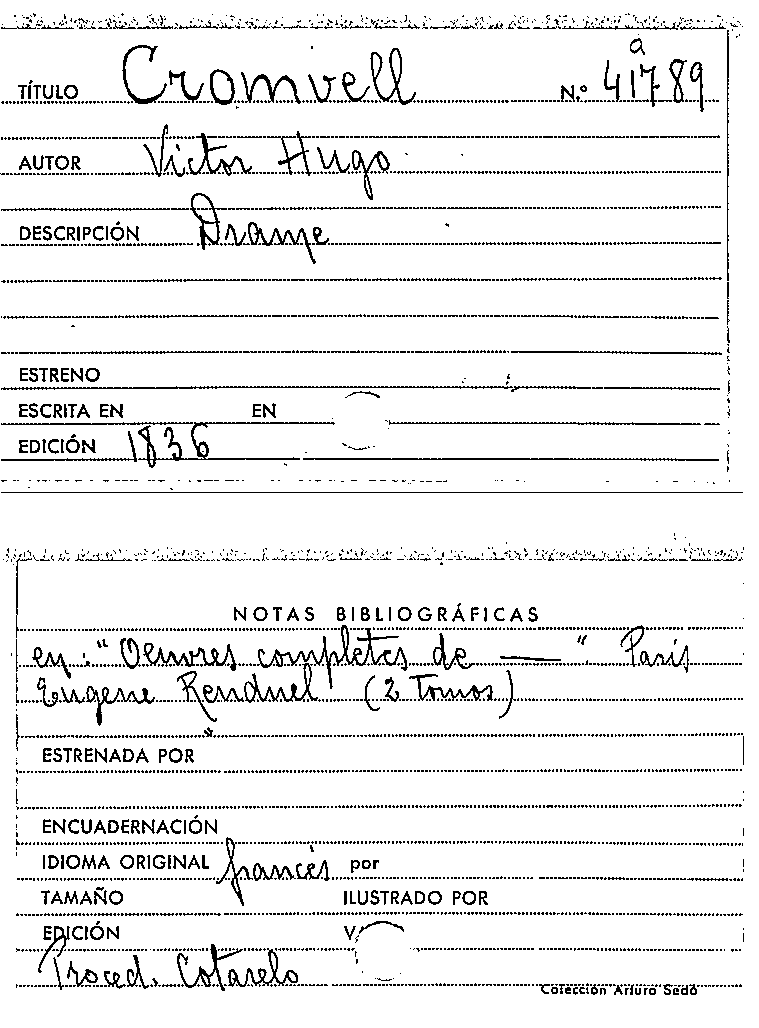 TÍTULO Cromvell N.º 41789 a
AUTOR Victor Hugo
DESCRIPCIÓN Drame
ESTRENO
ESCRITA EN EN
EDICIÓN 1836
NOTAS BIBLIOGRÁFICAS
en: "Oeuvres completes de —". Paris
Eugene Renduel (2 Tomos)
ESTRENADA POR
ENCUADERNACIÓN
IDIOMA ORIGINAL francés por
TAMAÑO ILUSTRADO POR
EDICIÓN
Proced. Cotarelo
Colección Arturo Sedó